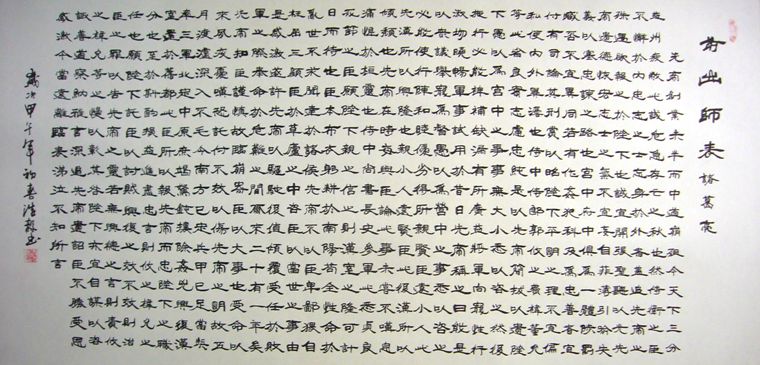 前出師表 諸葛亮
先帝創業未半而中道崩殂今天下三分
益州疲敝此誠危急存亡之秋也然侍衛之臣
不懈於內忠志之士忘身於外者蓋追先帝之
殊遇欲報之於陛下也誠宜開張聖聽以光先
帝遺德恢弘志士之氣不宜妄自菲薄引喻失
義以塞忠諫之路也宮中府中俱為一體陟罰
臧否不宜異同若有作奸犯科及為忠善者宜
付有司論其刑賞以昭陛下平明之理不宜偏
私使內外異法也侍中侍郎郭攸之費禕董允
等此皆良實志慮忠純是以先帝簡拔以遺陛
下愚以為宮中之事事無大小悉以咨之然後
施行必能裨補闕漏有所廣益將軍向寵性行
淑均曉暢軍事試用於昔日先帝稱之曰能是
以眾議舉寵為督愚以為營中之事悉以咨之
必能使行陣和睦優劣得所親賢臣遠小人此
先漢所以興隆也親小人遠賢臣此後漢所以
傾頹也先帝在時每與臣論此事未嘗不歎息
痛恨於桓靈也侍中尚書長史參軍此悉貞良
死節之臣願陛下親之信之則漢室之隆可計
日而待也臣本布衣躬耕於南陽苟全性命於
亂世不求聞達於諸侯先帝不以臣卑鄙猥自
枉屈三顧臣於草廬之中咨臣以當世之事由
是感激遂許先帝以驅馳後值傾覆受任於敗
軍之際奉命於危難之間爾來二十有一年矣
先帝知臣謹慎故臨崩寄臣以大事也受命以
來夙夜憂歎恐託付不效以傷先帝之明故五
月渡瀘深入不毛今南方已定兵甲已足當獎
率三軍北定中原庶竭駑鈍攘除姦凶興復漢
室還於舊都此臣所以報先帝而忠陛下之職
分也至於斟酌損益進盡忠言則攸之禕允之
任也願陛下託臣以討賊興復之效不效則治
臣之罪以告先帝之靈若無興德之言則責攸
之禕允等之慢以彰其咎陛下亦宜自謀以咨
諏善道察納雅言深追先帝遺詔臣不勝受恩
感激今當遠離臨表涕泣不知所言
歲次甲午年初春浩書